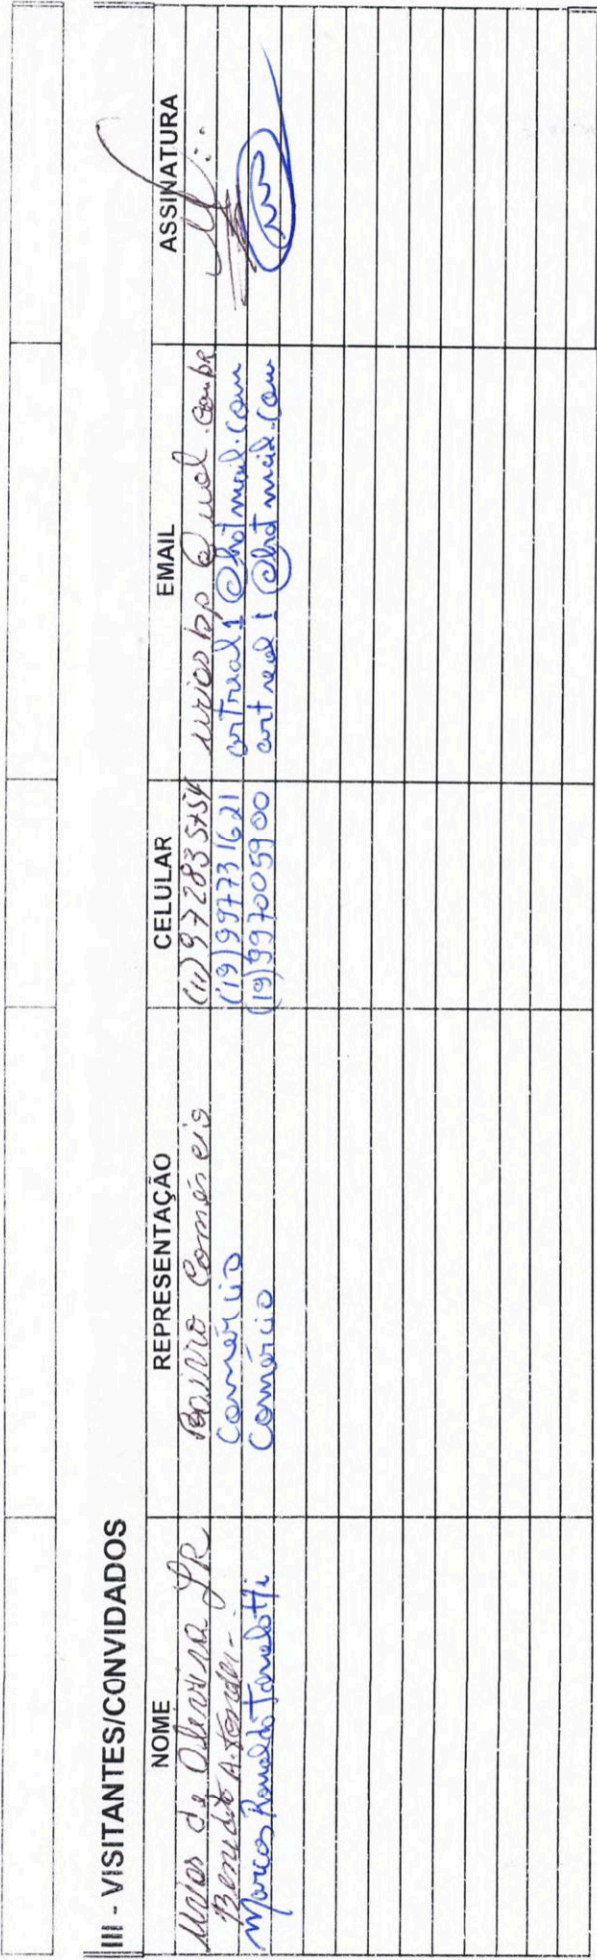 III - VISITANTES/CONVIDADOS
NOME REPRESENTAÇÃO CELULAR EMAIL ASSINATURA
de Oliveira JR Bairro Comércio (11) 97283 5754 @uol.com.br
Benedito A. Comércio (19) 997731621 artreal1@hotmail.com
Marcos Ronaldo Tonelotti Comércio (19) 997005900 artreal1@hotmail.com